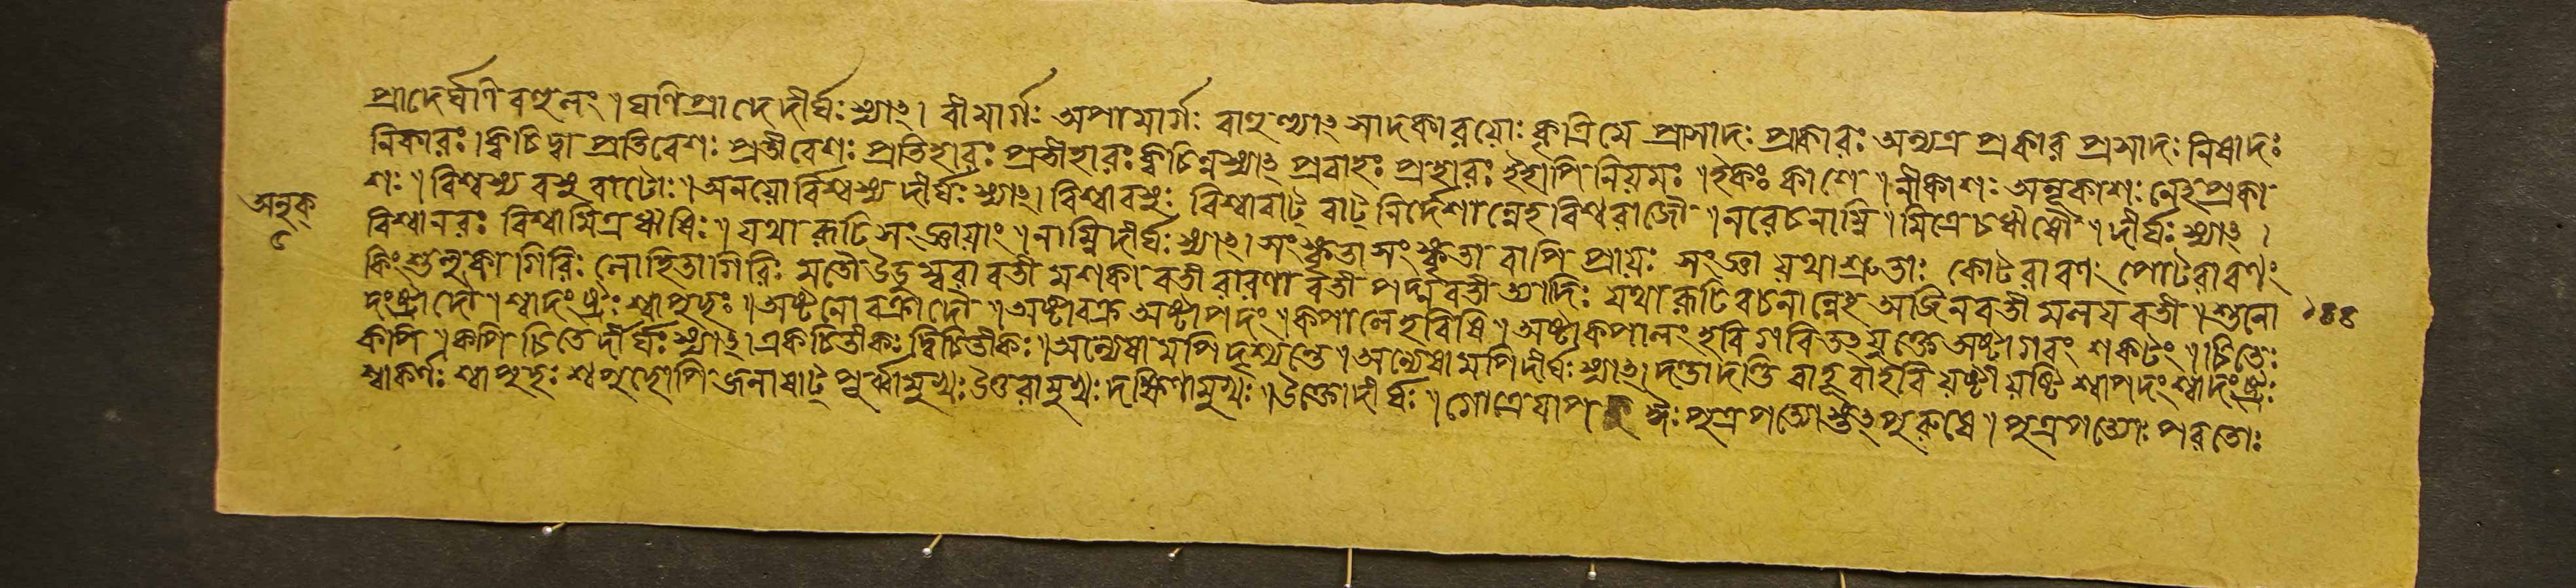 প্রাদের্ঘঞি বহুলং । ঘঞি প্রাদে দীর্ঘঃ স্যাৎ । বীমার্গঃ অপামার্গঃ বাহুল্যাৎ সাদকারয়োঃ কৃত্রিমে প্রাসাদঃ প্রাকারঃ অন্যত্র প্রকার প্রসাদঃ নিষাদঃ
নিকারঃ । ক্বচিদ্বা প্রতিবেশঃ প্রতীবেশঃ প্রতিহারঃ প্রতীহারঃ ক্বচিন্নস্যাৎ প্রবাহঃ প্রহারঃ ইহাপি নিয়মঃ । ইকঃ কাশে । নীকাশঃ অনূকাশঃ নেহ প্রকা
শঃ । বিশ্বস্য বসু বাটোঃ । অনয়ো র্বিশ্বস্য দীর্ঘঃ স্যাৎ । বিশ্বাবসুঃ বিশ্বাবাট্ বাট্ নির্দেশান্নেহ বিশ্বরাজৌ । নরেচনাম্নি । মিত্রেচর্ষৌ । দীর্ঘঃ স্যাৎ ।
বিশ্বানরঃ বিশ্বামিত্র ঋষিঃ । যথা রূঢি সংজ্ঞায়াং । নাম্নি দীর্ঘঃ স্যাৎ । সংস্কৃতাসংস্কৃতা বাপি প্রায়ঃ সংজ্ঞা যথাশ্রুতাঃ কোটরাবণং পোটরাবণং
কিংশুলুকাগিরিঃ লোহিতাগিরিঃ মতৌ উডুম্বরাবতী মশকাবতী বারণাবতী পদ্মবতী ত্যাদিঃ যথা রূঢি বচনান্নেহ অজিনবতী মলয়বতী । শুনো
দংষ্ট্রাদৌ । শ্বাদংষ্ট্রঃ শ্বাপুচ্ছঃ । অষ্টনো বক্রাদৌ । অষ্টাবক্র অষ্টাপদং । কপালে হবিষি । অষ্টাকপালং হবি গবি তৎ যুক্তে অষ্টাগবং শকটং । চিতেঃ
কপি । কপি চিতে দীর্ঘঃ স্যাৎ । একচিতীকঃ দ্বিচিতীকঃ । অন্যেষামপি দৃশ্যন্তে । অন্যেষামপি দীর্ঘঃ স্যাৎ । দন্তাদন্তি বাহূবাহবি যষ্টীযষ্টি শ্বাপদং শ্বাদংষ্ট্রঃ
শ্বাকর্ণঃ শ্বাপুচ্ছঃ শ্বপুচ্ছোপি জনাষাট্ পূর্ব্বামুখঃ উত্তরামুখঃ দক্ষিণামুখঃ । উক্তো দীর্ঘঃ । গোত্রে ষাপ ঙ্গঃ পুত্রপত্যোস্তৎপুরুষে । পুত্রপত্যোঃ পরতোঃ
অলুক্
১৪৪